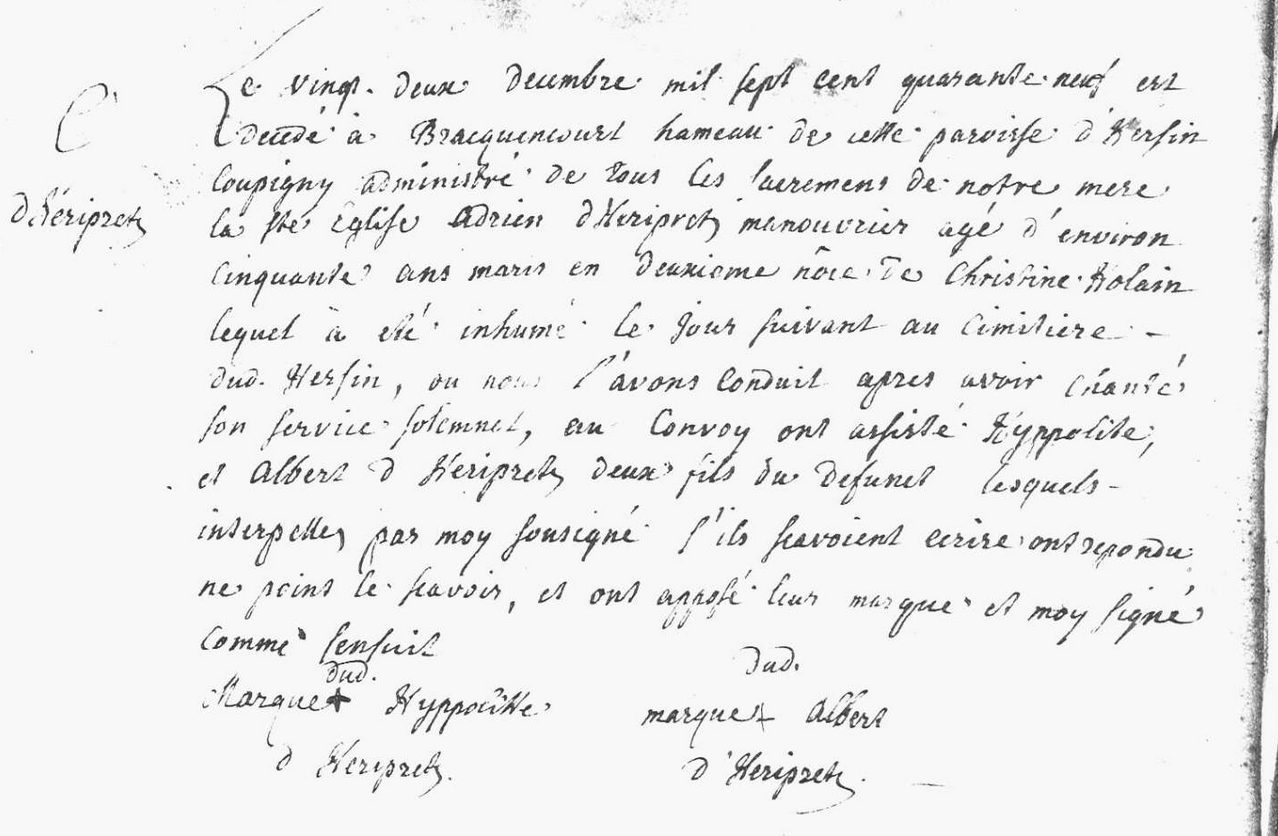 C
d'héripretz
Le vingt deux decembre mil sept cent quarante neuf est
decedé à Bracquencourt hameau de cette paroisse d'Hersin
Coupigny administré de tous les sacremens de notre mere
la ste Eglise Adrien d'Heripretz manouvrier agé d'environ
cinquante ans maris en deuxieme nôce de Christine Holain
lequel à eté inhumé le jour suivant au Cimitiere -
dud. Hersin, ou nous l'avons Conduit apres avoir Chanté
son service solemnel, au Convoy ont assisté Hyppolite,
et Albert d'Heripretz deux fils du defunct lesquels -
interpellez par moy sousigné s'ils scavoient ecrire ont repondu
ne point le scavoir, et ont apposé leur marque et moy signé
comme sensuit
dud.
Marque + Hyppolitte
d'Heripretz.
dud.
marque + Albert
d'Heripretz.